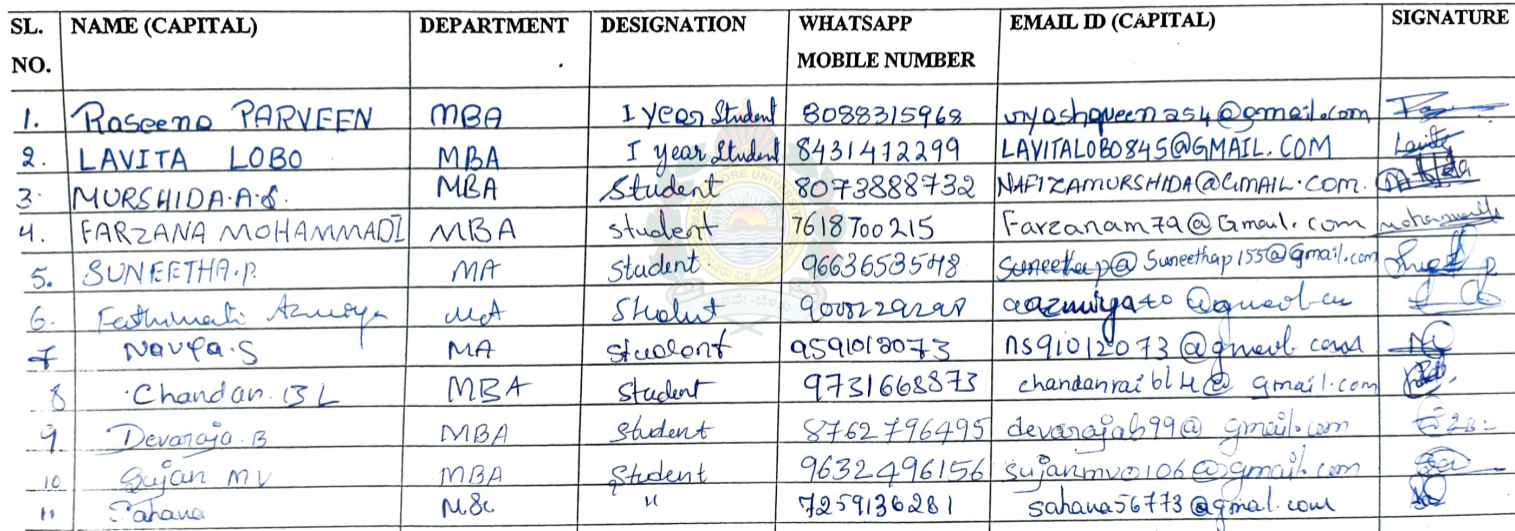 SL. NO. NAME (CAPITAL) DEPARTMENT DESIGNATION WHATSAPP MOBILE NUMBER EMAIL ID (CAPITAL) SIGNATURE
1. Raseena PARVEEN MBA I year Student 8088315968
2. LAVITA LOBO MBA I year Student 8431412299 LAVITALOBO845@GMAIL.COM Lavita
3. MURSHIDA.A.S. MBA Student 8073888732 NAFIZAMURSHIDA@GMAIL.COM.
4. FARZANA MOHAMMADI MBA student 7618700215 Farzanam79@Gmail.com
5. SUNEETHA.P. MA Student. 9663653548 Suneethap155@gmail.com
6. MA Student
7 Navya.S MA student 9591012073 ns91012073@gmail.com
8 Chandan B L MBA Student 9731668873 chandanraibl4@gmail.com
9 Devaraja.B MBA Student 8762796495 devarajab99@gmail.com
10 Sujan MV MBA Student 9632496156 sujanmv0106@gmail.com
11 Sahana MSc " 7259136281 sahana56773@gmail.com